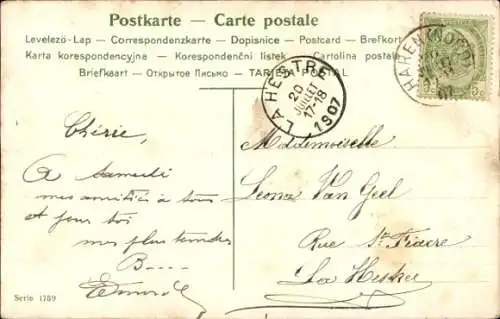 Postkarte – Carte postale
Levelező-Lap — Correspondenzkarte — Dopisnice — Postcard — Brefkort
Karta korespondencyjna — Korespondenční listek — Cartolina postale
Briefkaart — Открытое Письмо — TARJETA POSTAL
HAREN (NORD)
LA HESTRE
20
JUILLET
17-18
1907
Chérie,
A Samedi
mes amitiés à tous
et pour toi
mes plus tendres
B----
Mademoiselle
Leona Van Geel
Rue St Fiacre
La Hestre
Serie 1789